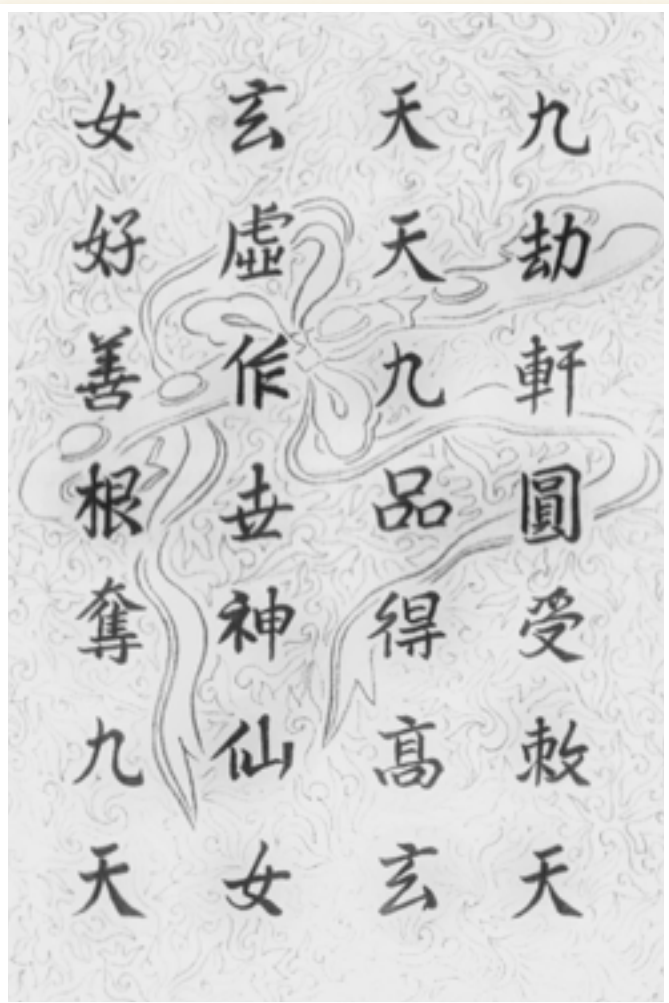 九劫軒圓受敕天
天天九品得高玄
玄虛作世神仙女
女好善根奪九天